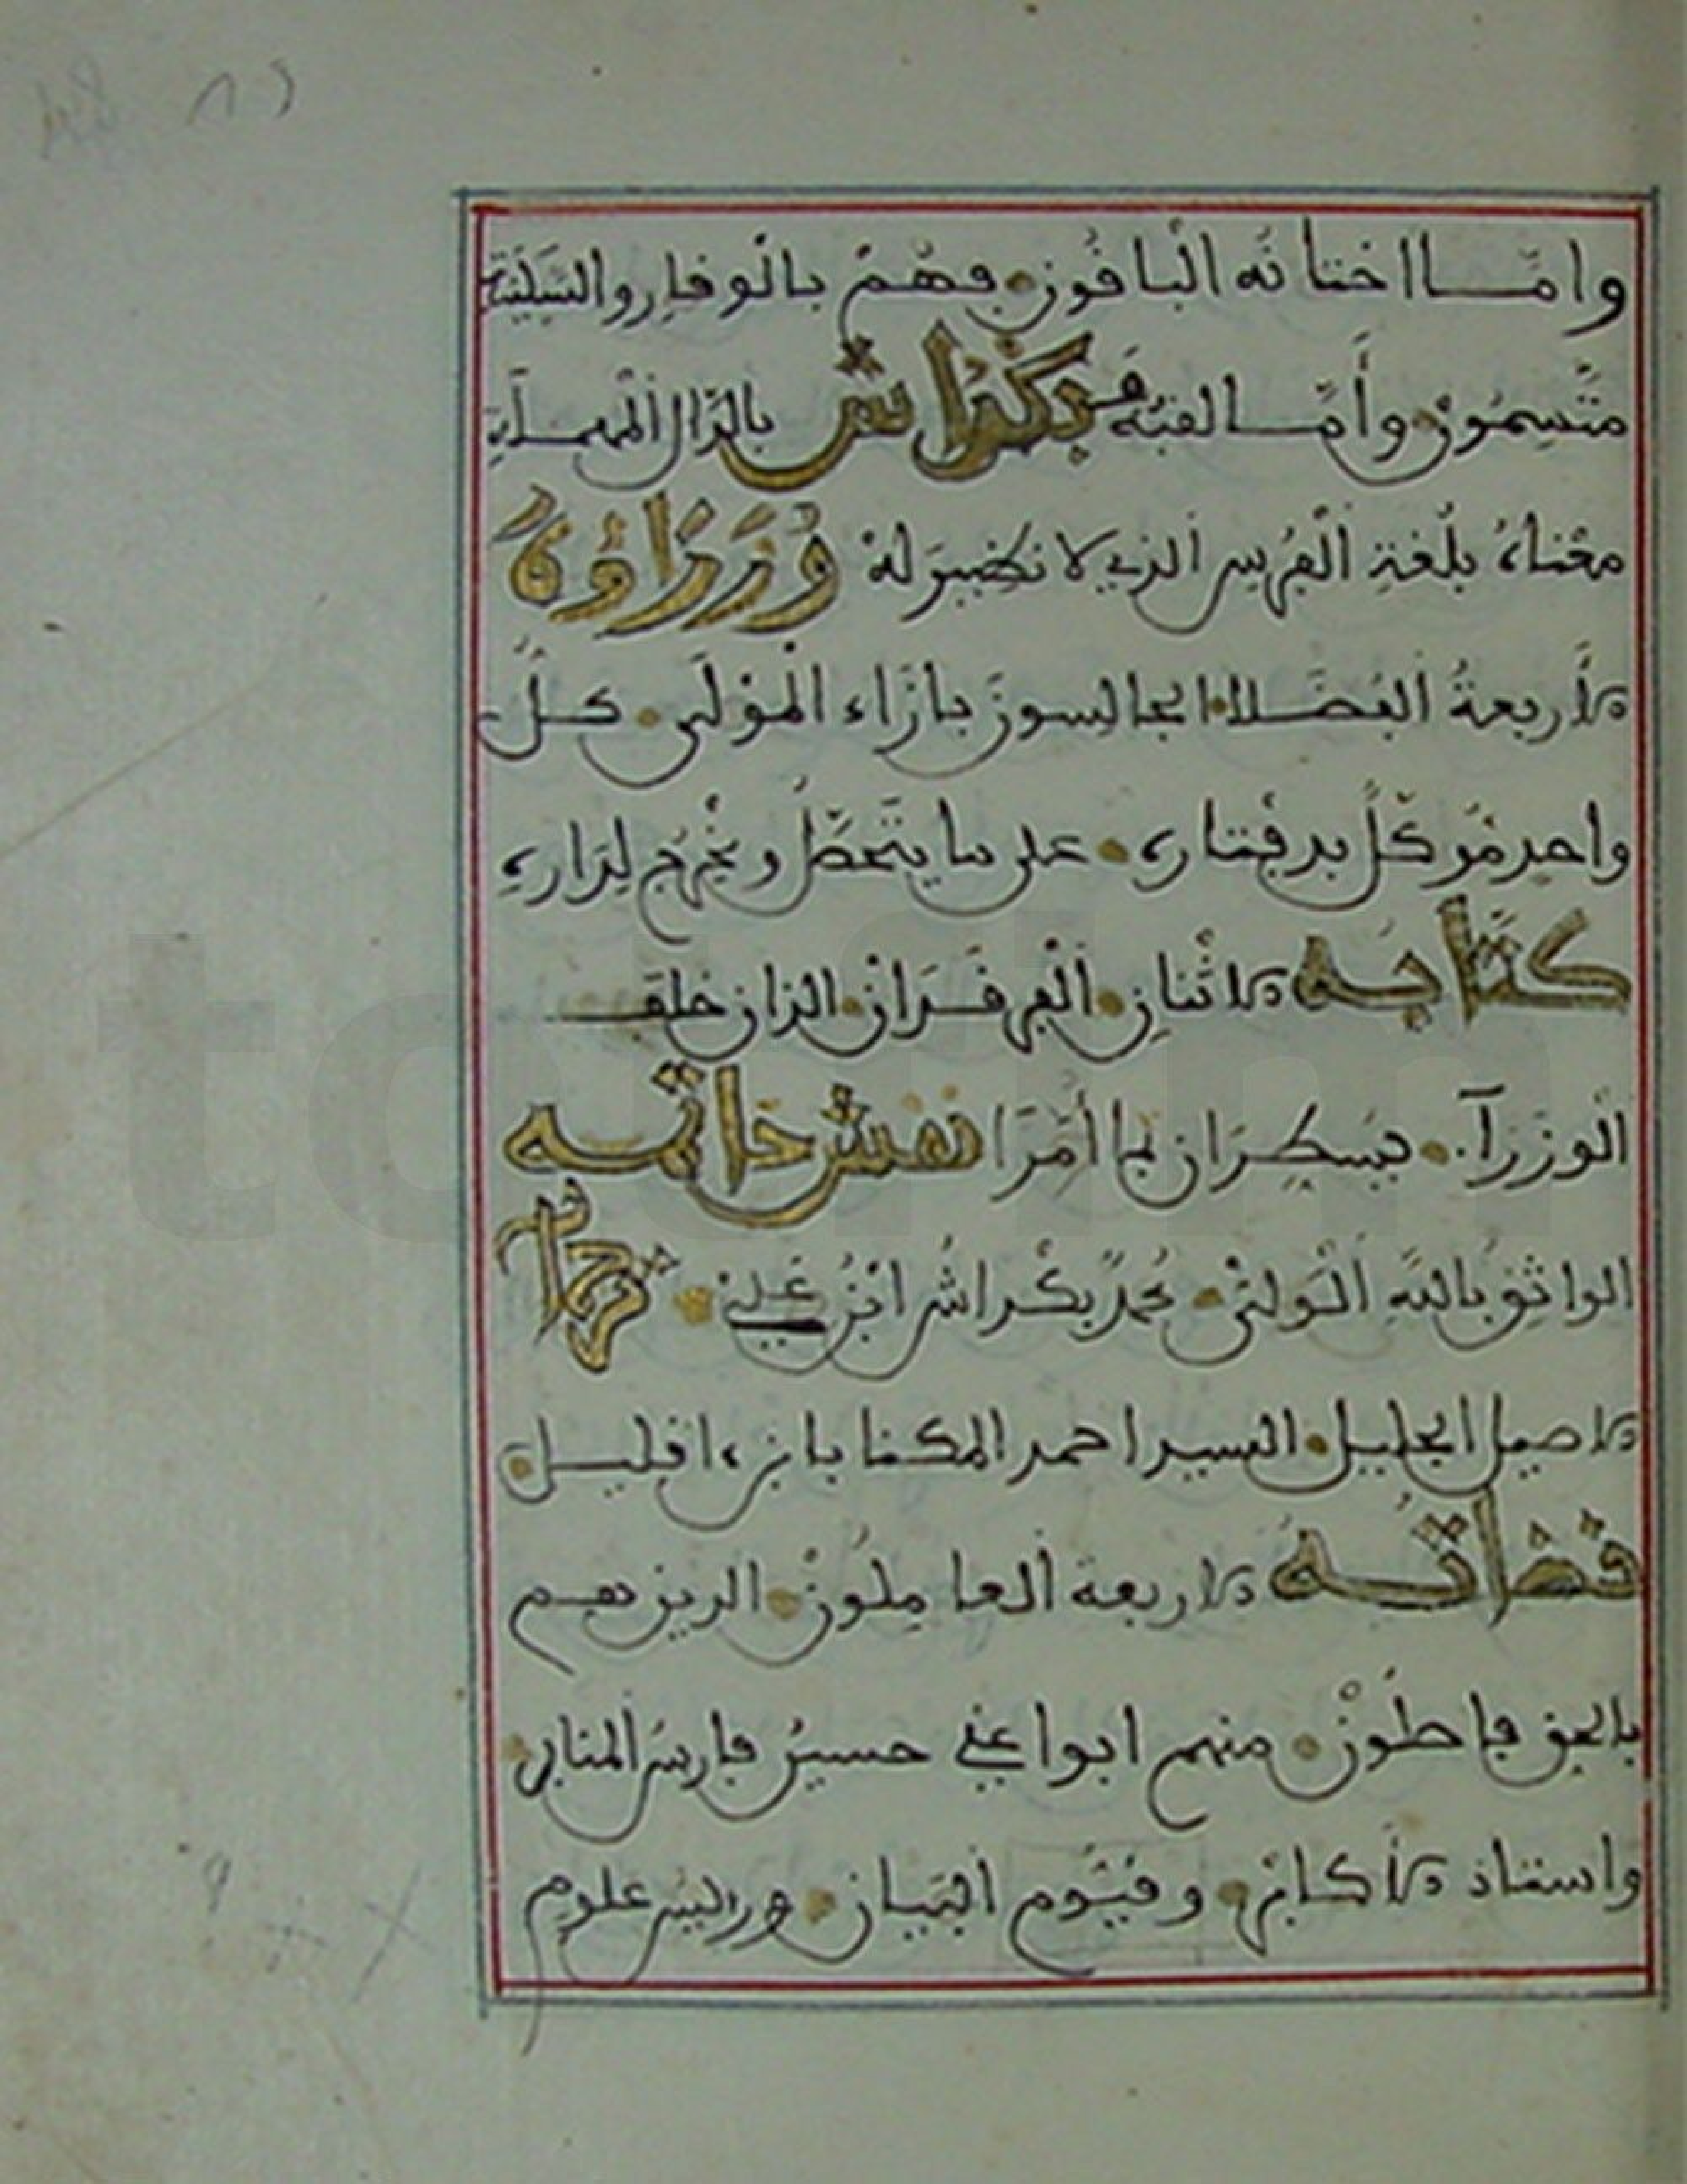 وامّا اختانه الباقون فهم بالوفار والسكينة
متسمون وأمّا لقبه بكداش بالدال المهملة
معناه بلغة الفرس الذي لا نضير له وزراؤه
الأربعة الفضلا الجالسون بازاء المولى كل
واحد موكل بدفتاره على ما يتحصل ويخرج لداره
كتابه الاثنان الفرقدان الذان خلف
الوزرآ يسطران لما أمرا نقش خاتمه
الواثق بالله الولي محمد بكداش ابن علي
الاصيل الجليل السيد احمد المكنا بابن اقليل
قضاته الاربعة العاملون الذين هم
بالحق فاطون منهم ابوا علي حسين فارس المنابر
واستاذ الأكابر وقيوم البيان ورئيس علوم